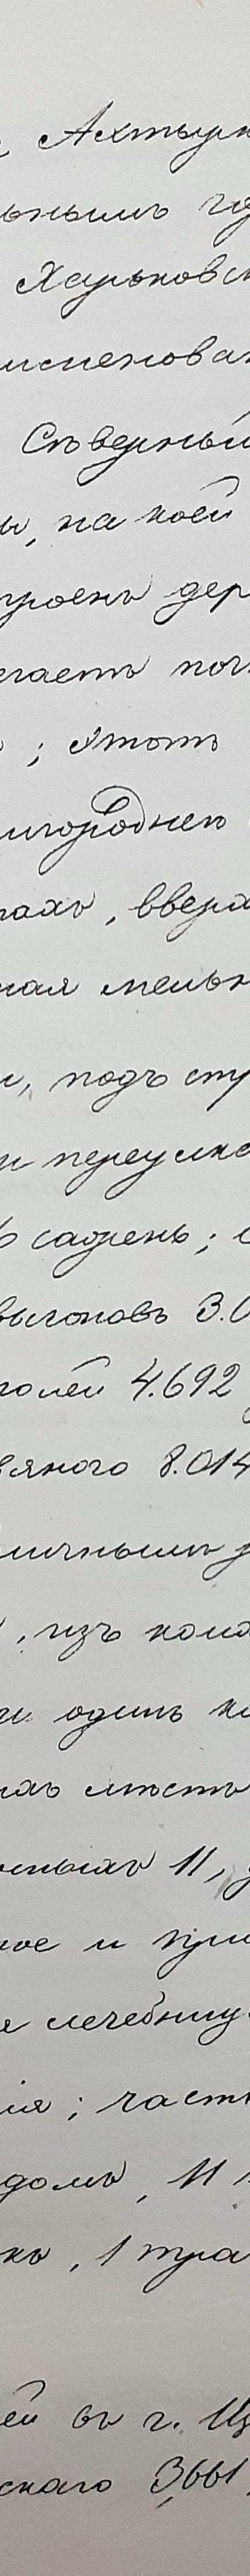 Ахтырк
ьнымъ го
Харьковск
именован
Сѣверный
ы, на коей
троенъ дер
егаетъ поч
; этотъ
игороднее
тахъ, вверх
ная мельн
и, подъ стр
и переулка
саженъ; с
выгоновъ 3.0
полей 4.692
вяного 8.014
ичнымъ
, изъ коих
и одинъ ка
ихъ мѣстъ
нныхъ 11,
ное и при
я лечебницу
ія; част
домъ, 11
къ, 1 тра
ей въ г.
скаго 3,661